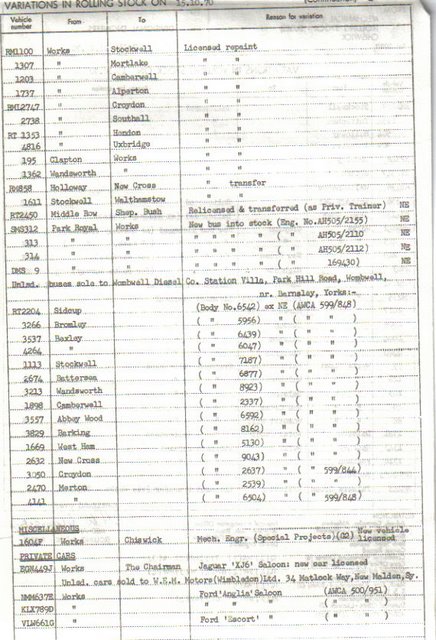 VARIATIONS IN ROLLING STOCK ON 15.10.70
Vehicle number From To Reason for variation
RM1100 Works Stockwell Licensed repaint
1307 " Mortlake " "
1203 " Camberwell " "
1737 " Alperton " "
RML2747 " Croydon " "
2738 " Southall " "
RT 1353 " Hendon " "
4816 " Uxbridge " "
195 Clapton Works " "
1362 Wandsworth " " "
RM858 Holloway New Cross " transfer
1611 Stockwell Walthamstow " "
RT2450 Middle Row Shep. Bush Relicensed & transferred (as Priv. Trainer) NE
SMS312 Park Royal Works New bus into stock (Eng. No.AH505/2155) NE
313 " " " " " " ( " AH505/2110 NE
314 " " " " " " ( " AH505/2112) NE
DMS 9 " " " " " " ( " 169430) NE
Unlsd. buses sold to Wombwell Diesel Co. Station Villa, Park Hill Road, Wombwell,
nr. Barnsley, Yorks:-
RT2204 Sidcup (Body No.6542) ex NE (AWCA 599/848)
3266 Bromley ( " 5956) " ( " " )
3537 Bexley ( " 6439) " ( " " )
4264 " ( " 6047) " ( " " )
1113 Stockwell ( " 7187) " ( " " )
2674 Battersea ( " 6877) " ( " " )
3213 Wandsworth ( " 8923) " ( " " )
1898 Camberwell ( " 2337) " ( " " )
3557 Abbey Wood ( " 6592) " ( " " )
3829 Barking ( " 8162) " ( " " )
1669 West Ham ( " 5130) " ( " " )
2632 New Cross ( " 9043) " ( " " )
3050 Croydon ( " 2637) " ( " 599/844)
2470 Merton ( " 2539) " ( " " )
4141 " ( " 6504) " ( " 599/848)
MISCELLANEOUS
1604F Works Chiswick Mech. Engr. (Special Projects)(82) New vehicle licensed
PRIVATE CARS
EGM449J Works The Chairman Jaguar 'XJ6' Saloon: new car licensed
Unlsd. cars sold to W.E.M. Motors(Wimbledon)Ltd. 34 Matlock Way,New Malden,Sy.
NMM637E Works Ford'Anglia'Saloon (AWCA 500/951)
KLX789D " " " ( " " )
VLW661G " Ford 'Escort' " ( " " )